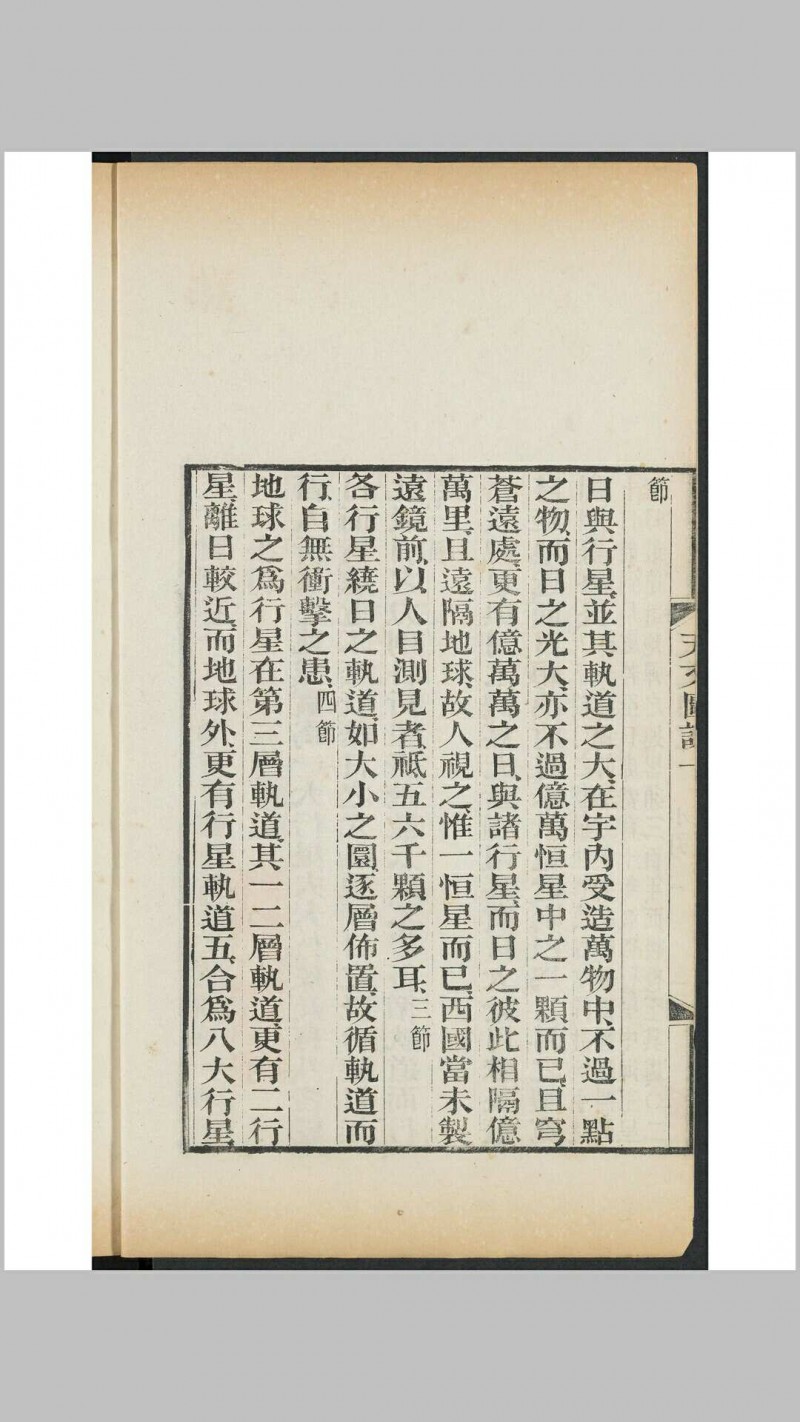 天文圖說一
節
日與行星、並其軌道之大、在宇內受造萬物中、不過一點
之物、而日之光大、亦不過億萬恒星中之一顆而已、且穹
蒼遠處、更有億萬萬之日、與諸行星、而日之彼此相隔億
萬里、且遠隔地球、故人視之、惟一恒星而已、西國當未製
遠鏡前、以人目測見者、祗五六千顆之多耳、三節
各行星繞日之軌道、如大小之圜、逐層佈置、故循軌道而
行、自無衝擊之患、四節
地球之爲行星在第三層軌道、其一二層軌道、更有二行
星、離日較近、而地球外、更有行星軌道五、合爲八大行星、